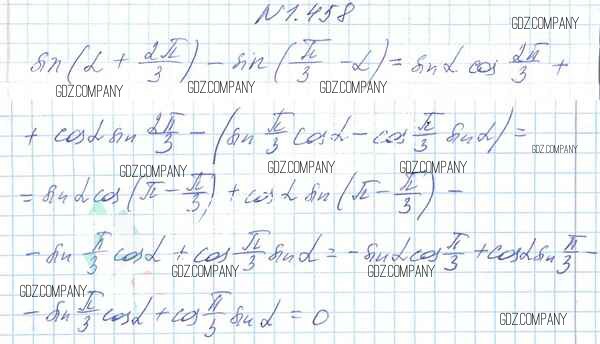 №1.458
GDZ.COMPANY
sin(α + 2π/3) − sin(π/3 − α) = sinα cos 2π/3 +
GDZ.COMPANY GDZ.COMPANY GDZ.COMPANY
+ cosα sin 2π/3 − (sin π/3 cosα − cos π/3 sinα) =
GDZ.COMPANY
GDZ.COMPANY GDZ.COMPANY GDZ.COMPANY
= sinα cos(π − π/3) + cosα sin(π − π/3) −
− sin π/3 cosα + cos π/3 sinα = − sinα cos π/3 + cosα sin π/3 −
GDZ.COMPANY GDZ.COMPANY
GDZ.COMPANY
− sin π/3 cosα + cos π/3 sinα = 0
GDZ.COMPANY